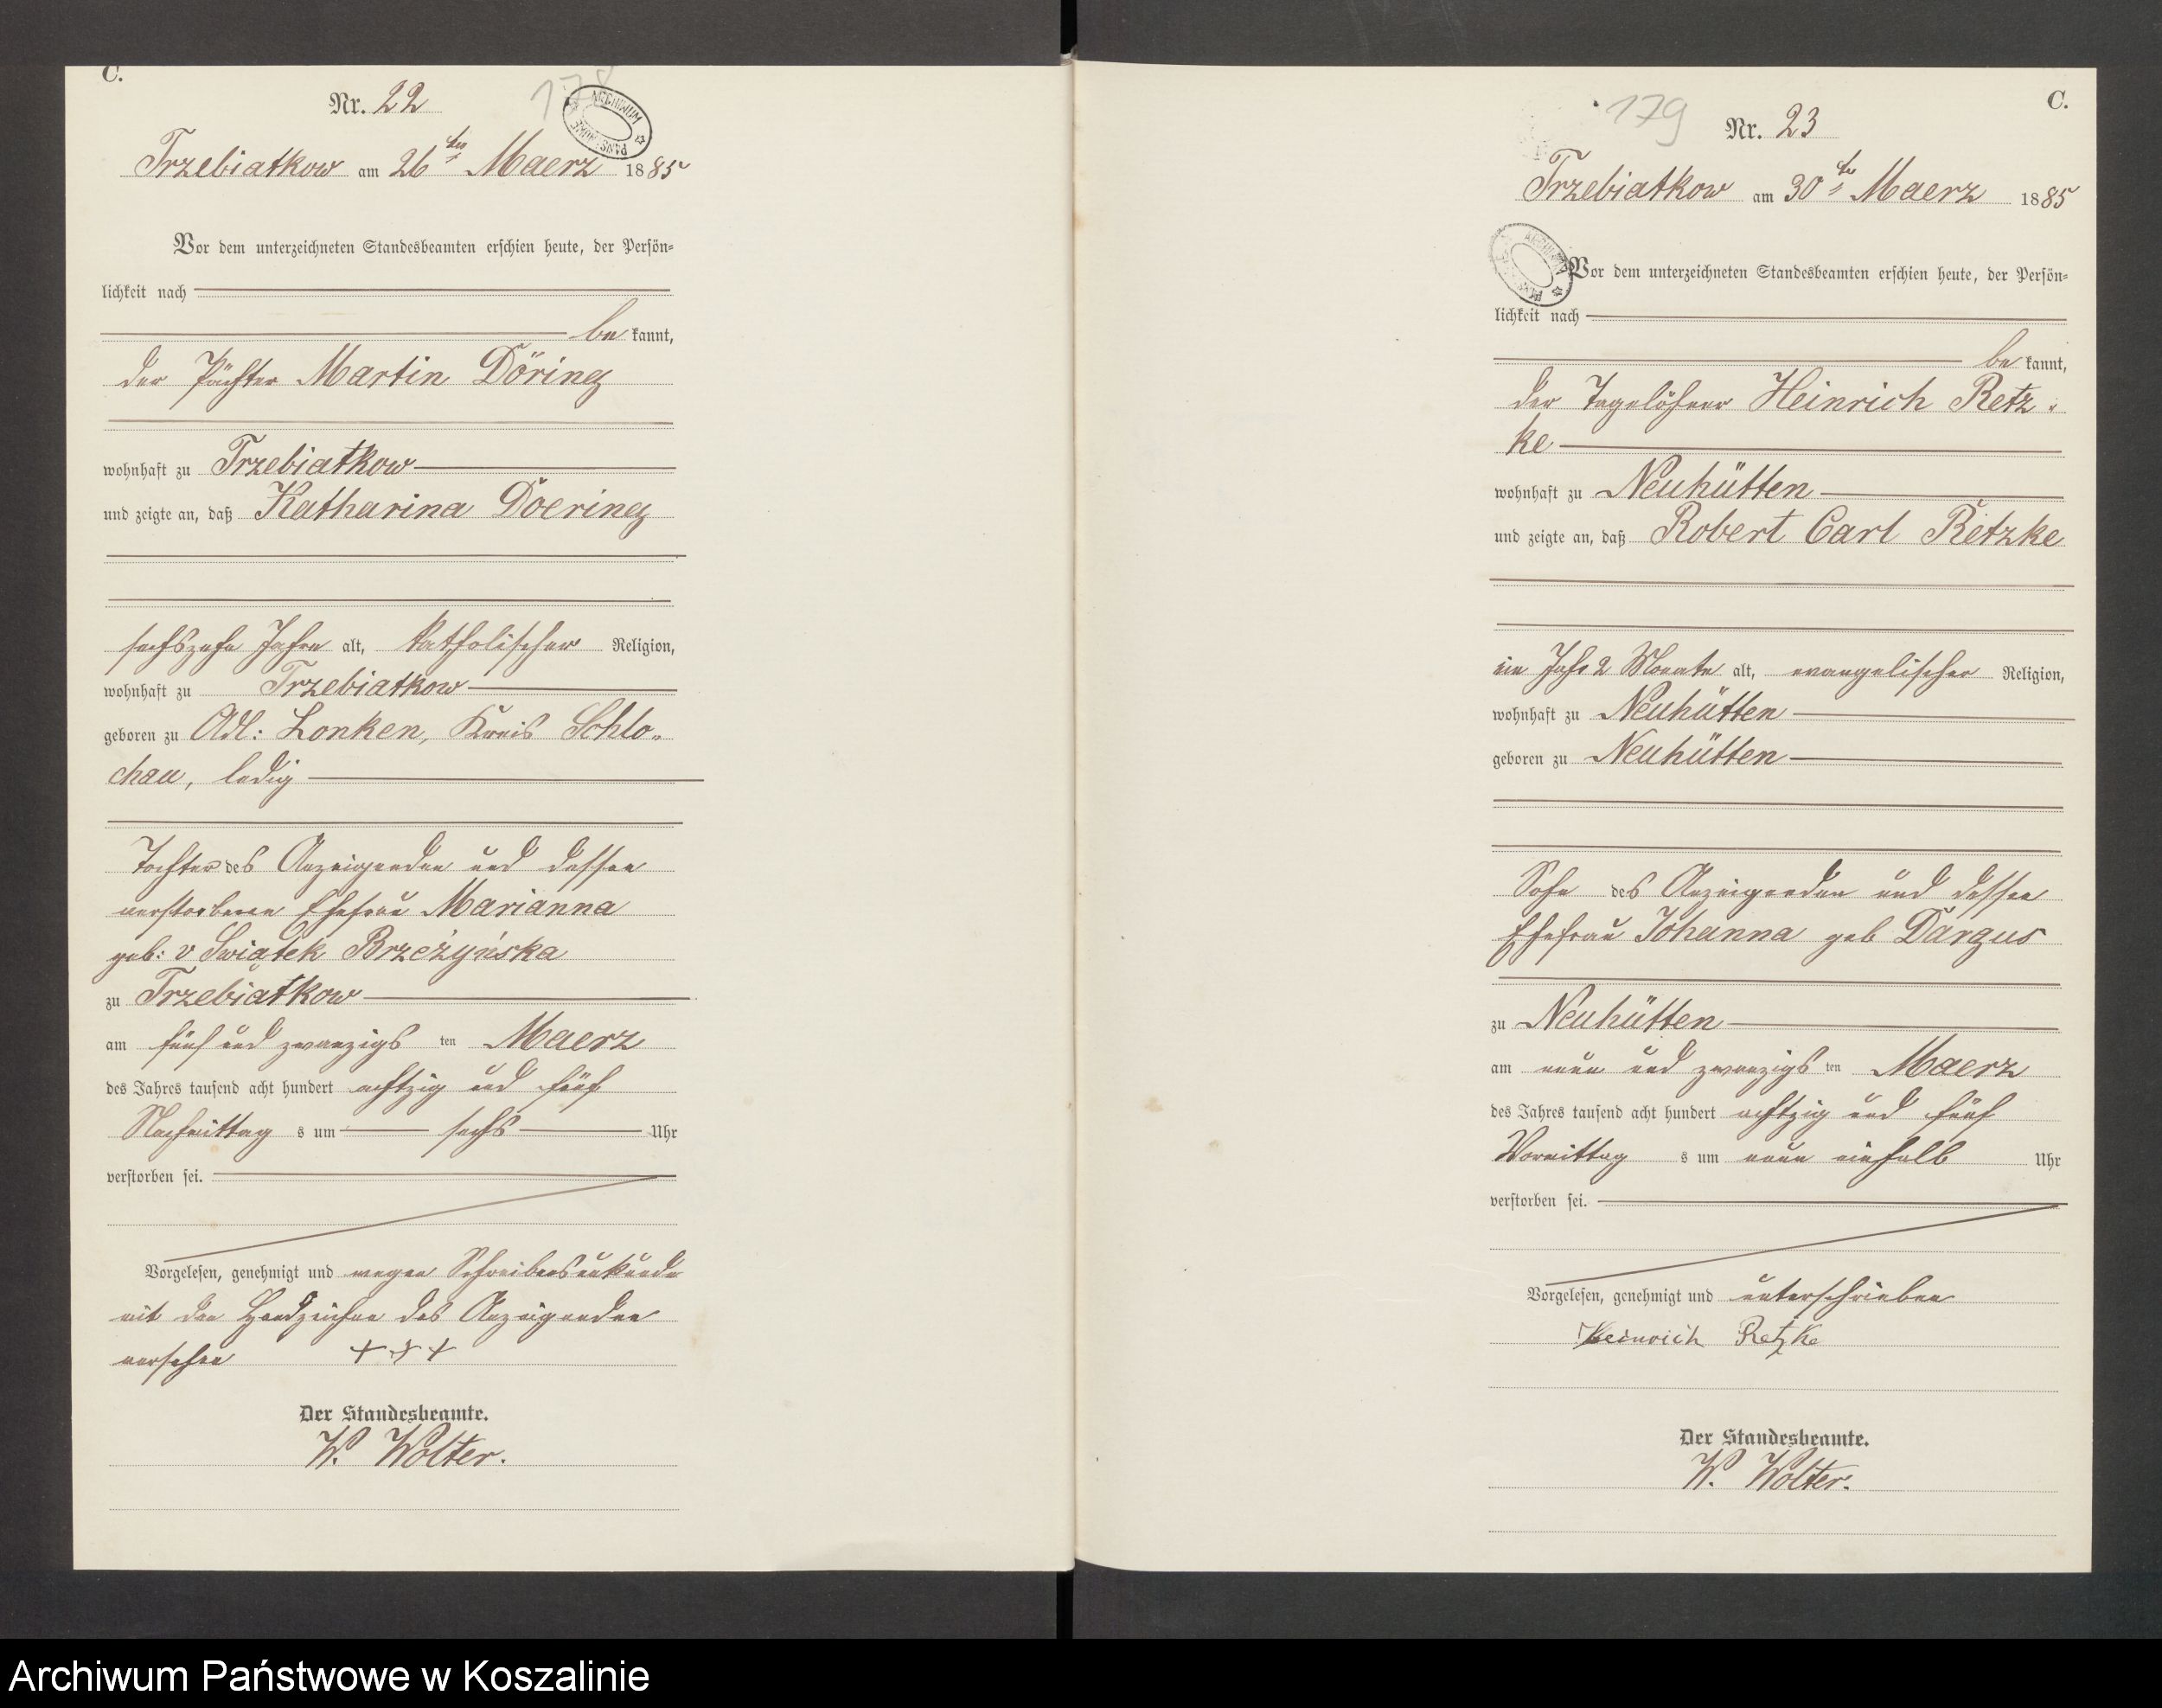 C.
178
Nr. 22
ARCHIWUM PAŃSTWOWE
Trzebiatkow am 26ten Maerz 1885
Vor dem unterzeichneten Standesbeamten erschien heute, der Persön=
lichkeit nach
be kannt,
der Pächter Martin Döring
wohnhaft zu Trzebiatkow
und zeigte an, daß Katharina Doering
sechszehn Jahre alt, katholischer Religion,
wohnhaft zu Trzebiatkow
geboren zu Adl: Lonken, Kreis Schlo-
chau, ledig
Tochter des Anzeigenden und dessen
verstorbenen Ehefrau Marianna
geb: v Swiątek Brzeżyńska
zu Trzebiatkow
am fünf und zwanzigs ten Maerz
des Jahres tausend acht hundert achtzig und fünf
Nachmittag s um sechs Uhr
verstorben sei.
Vorgelesen, genehmigt und wegen Schreibensunkunde
mit den Handzeichen des Anzeigenden
versehen +++
Der Standesbeamte.
W. Wolter.
C.
179
Nr. 23
Trzebiatkow am 30ten Maerz 1885
Vor dem unterzeichneten Standesbeamten erschien heute, der Persön=
lichkeit nach
be kannt,
der Tagelöhner Heinrich Retz-
ke
wohnhaft zu Neuhütten
und zeigte an, daß Robert Carl Retzke
ein Jahr 2 Monate alt, evangelischer Religion,
wohnhaft zu Neuhütten
geboren zu Neuhütten
Sohn des Anzeigenden und dessen
Ehefrau Johanna geb Dargus
zu Neuhütten
am neun und zwanzigs ten Maerz
des Jahres tausend acht hundert achtzig und fünf
Vormittag s um neun einhalb Uhr
verstorben sei.
Vorgelesen, genehmigt und unterschrieben
Heinrich Retzke
Der Standesbeamte.
W. Wolter.
Archiwum Państwowe w Koszalinie